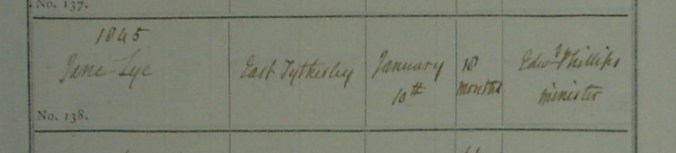 No. 137.
1845
Jane Lye
East Tytherley
January
10th
18
months
Edwd Phillips
minister
No. 138.